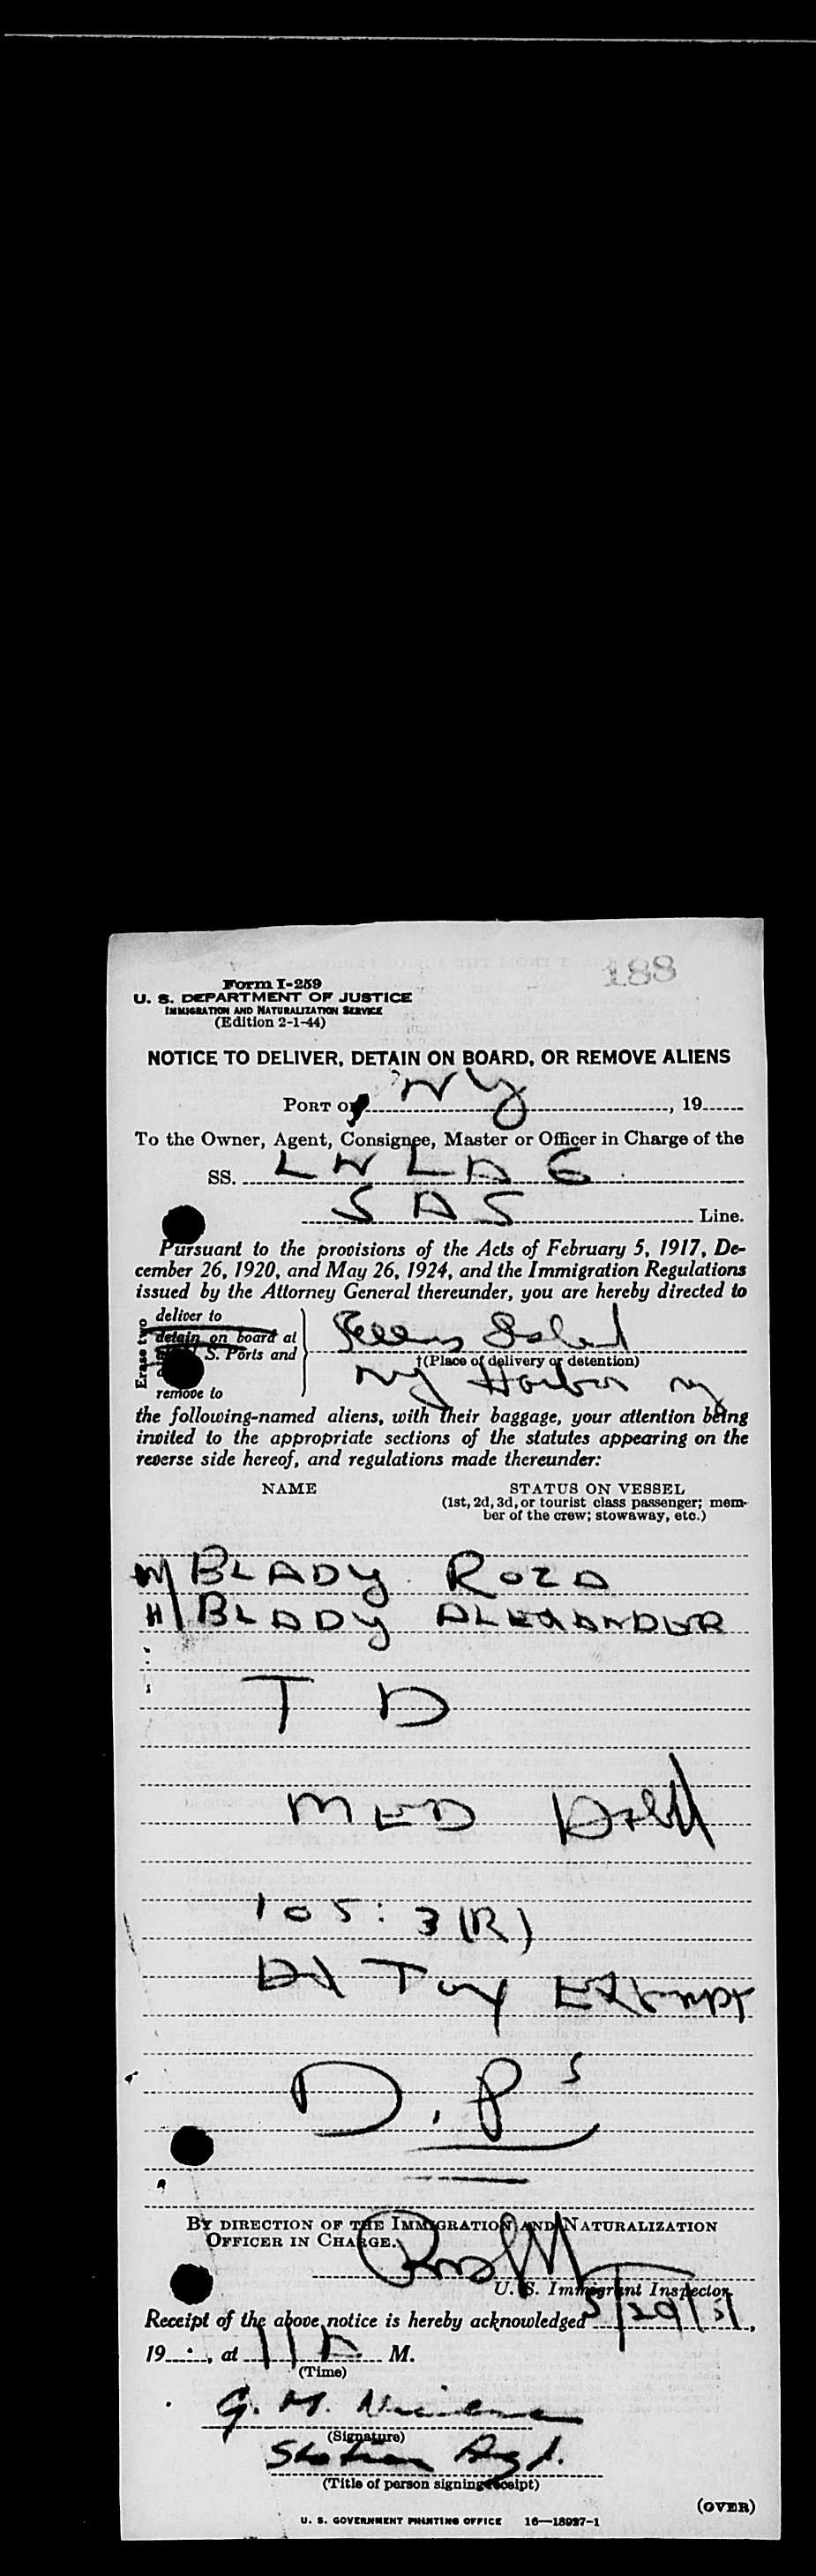 188
Form I-259
U. S. DEPARTMENT OF JUSTICE
IMMIGRATION AND NATURALIZATION SERVICE
(Edition 2-1-44)
NOTICE TO DELIVER, DETAIN ON BOARD, OR REMOVE ALIENS
PORT OF NY, 19
To the Owner, Agent, Consignee, Master or Officer in Charge of the
SS. LN LAG
SAS Line.
Pursuant to the provisions of the Acts of February 5, 1917, De-
cember 26, 1920, and May 26, 1924, and the Immigration Regulations
issued by the Attorney General thereunder, you are hereby directed to
Erase two
deliver to
detain on board at
S. Ports and
remove to
Island
†(Place of delivery or detention)
NY Harbor NY
the following-named aliens, with their baggage, your attention being
invited to the appropriate sections of the statutes appearing on the
reverse side hereof, and regulations made thereunder:
NAME STATUS ON VESSEL
(1st, 2d, 3d, or tourist class passenger; mem-
ber of the crew; stowaway, etc.)
W BLADY ROZA
H BLADY ALEXANDER
T D
MED
105:3(R)
Hd Tax Exempt
D.P.s
BY DIRECTION OF THE IMMIGRATION AND NATURALIZATION
OFFICER IN CHARGE.
U. S. Immigrant Inspector.
Receipt of the above notice is hereby acknowledged 5/29/51,
19, at 11 A M.
(Time)
G. M.
(Signature)
(Title of person signing receipt)
(OVER)
U. S. GOVERNMENT PRINTING OFFICE 16—18927-1